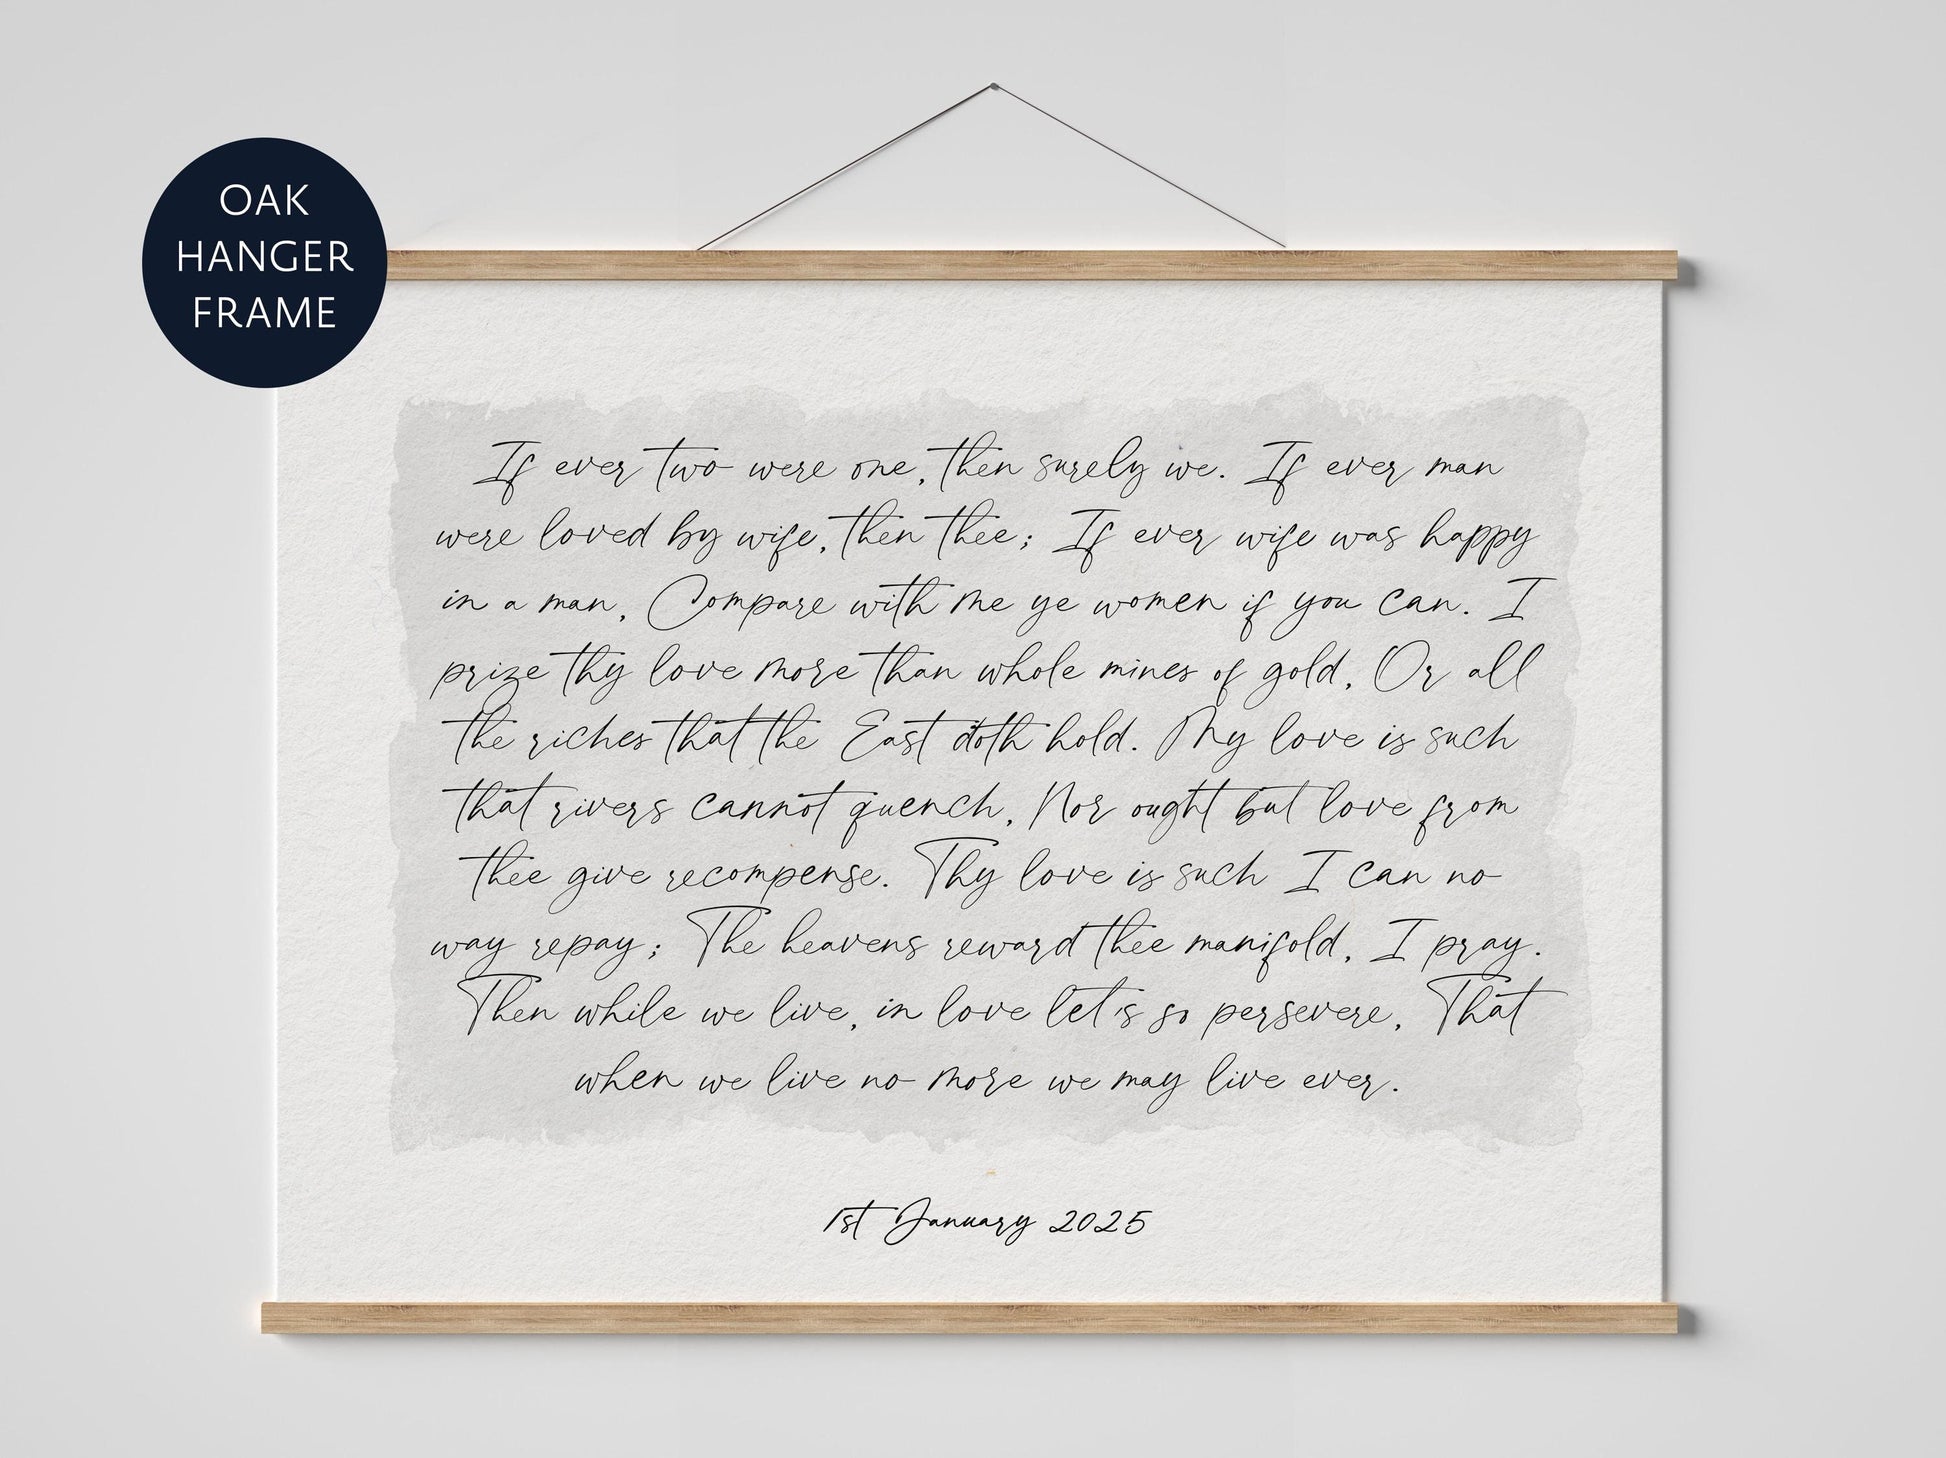 OAK
HANGER
FRAME
If ever two were one, then surely we. If ever man
were loved by wife, then thee; If ever wife was happy
in a man, Compare with me ye women if you can. I
prize thy love more than whole mines of gold, Or all
the riches that the East doth hold. My love is such
that rivers cannot quench, Nor ought but love from
thee give recompense. Thy love is such I can no
way repay; The heavens reward thee manifold, I pray.
Then while we live, in love let's so persevere, That
when we live no more we may live ever.
1st January 2025